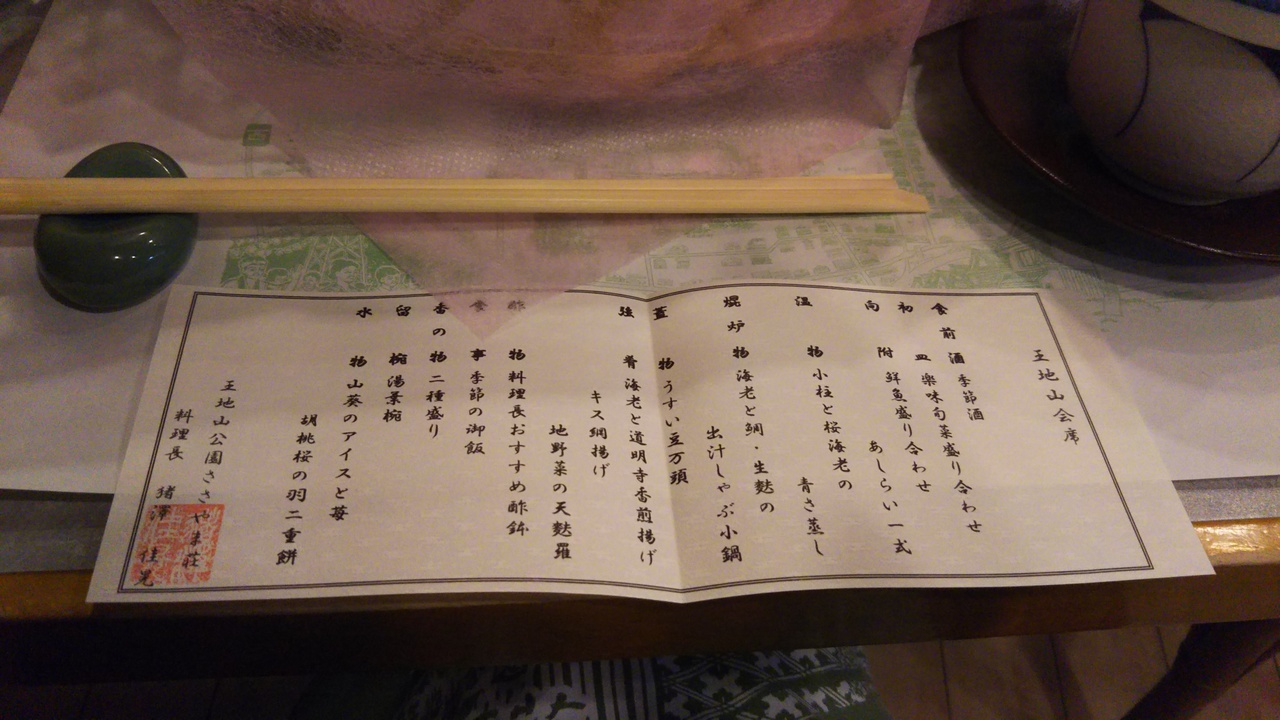 王地山会席
食前酒 季節酒
初皿 楽味旬菜盛り合わせ
向附 鮮魚盛り合わせ
あしらい一式
温物 小柱と桜海老の
青さ蒸し
焜炉物 海老と鯛・生麩の
出汁しゃぶ小鍋
蓋物 うすい豆万頭
強肴 海老と道明寺香煎揚げ
キス網揚げ
地野菜の天麩羅
酢物 料理長おすすめ酢鉢
食事 季節の御飯
香の物 二種盛り
留椀 湯葉椀
水物 山葵のアイスと苺
胡桃桜の羽二重餅
王地山公園ささやま荘
料理長